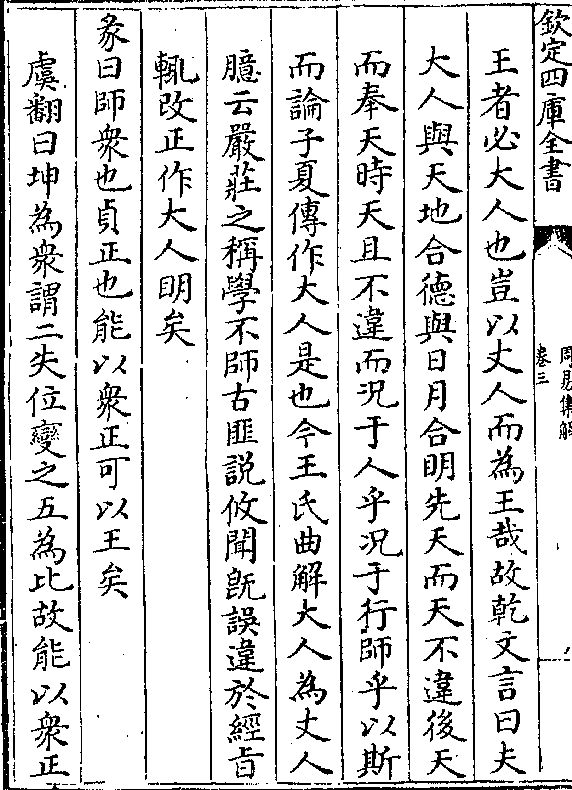 欽定四庫全書
周易集解
卷三
王者必大人也豈以丈人而為王哉故乾文言曰夫
大人與天地合德與日月合明先天而天不違後天
而奉天時天且不違而況于人乎況于行師乎以斯
而論子夏傳作大人是也今王氏曲解大人為丈人
臆云嚴莊之稱學不師古匪說攸聞旣誤違於經旨
輒改正作大人明矣
彖曰師衆也貞正也能以衆正可以王矣
虞翻曰坤為衆謂二失位變之五為比故能以衆正